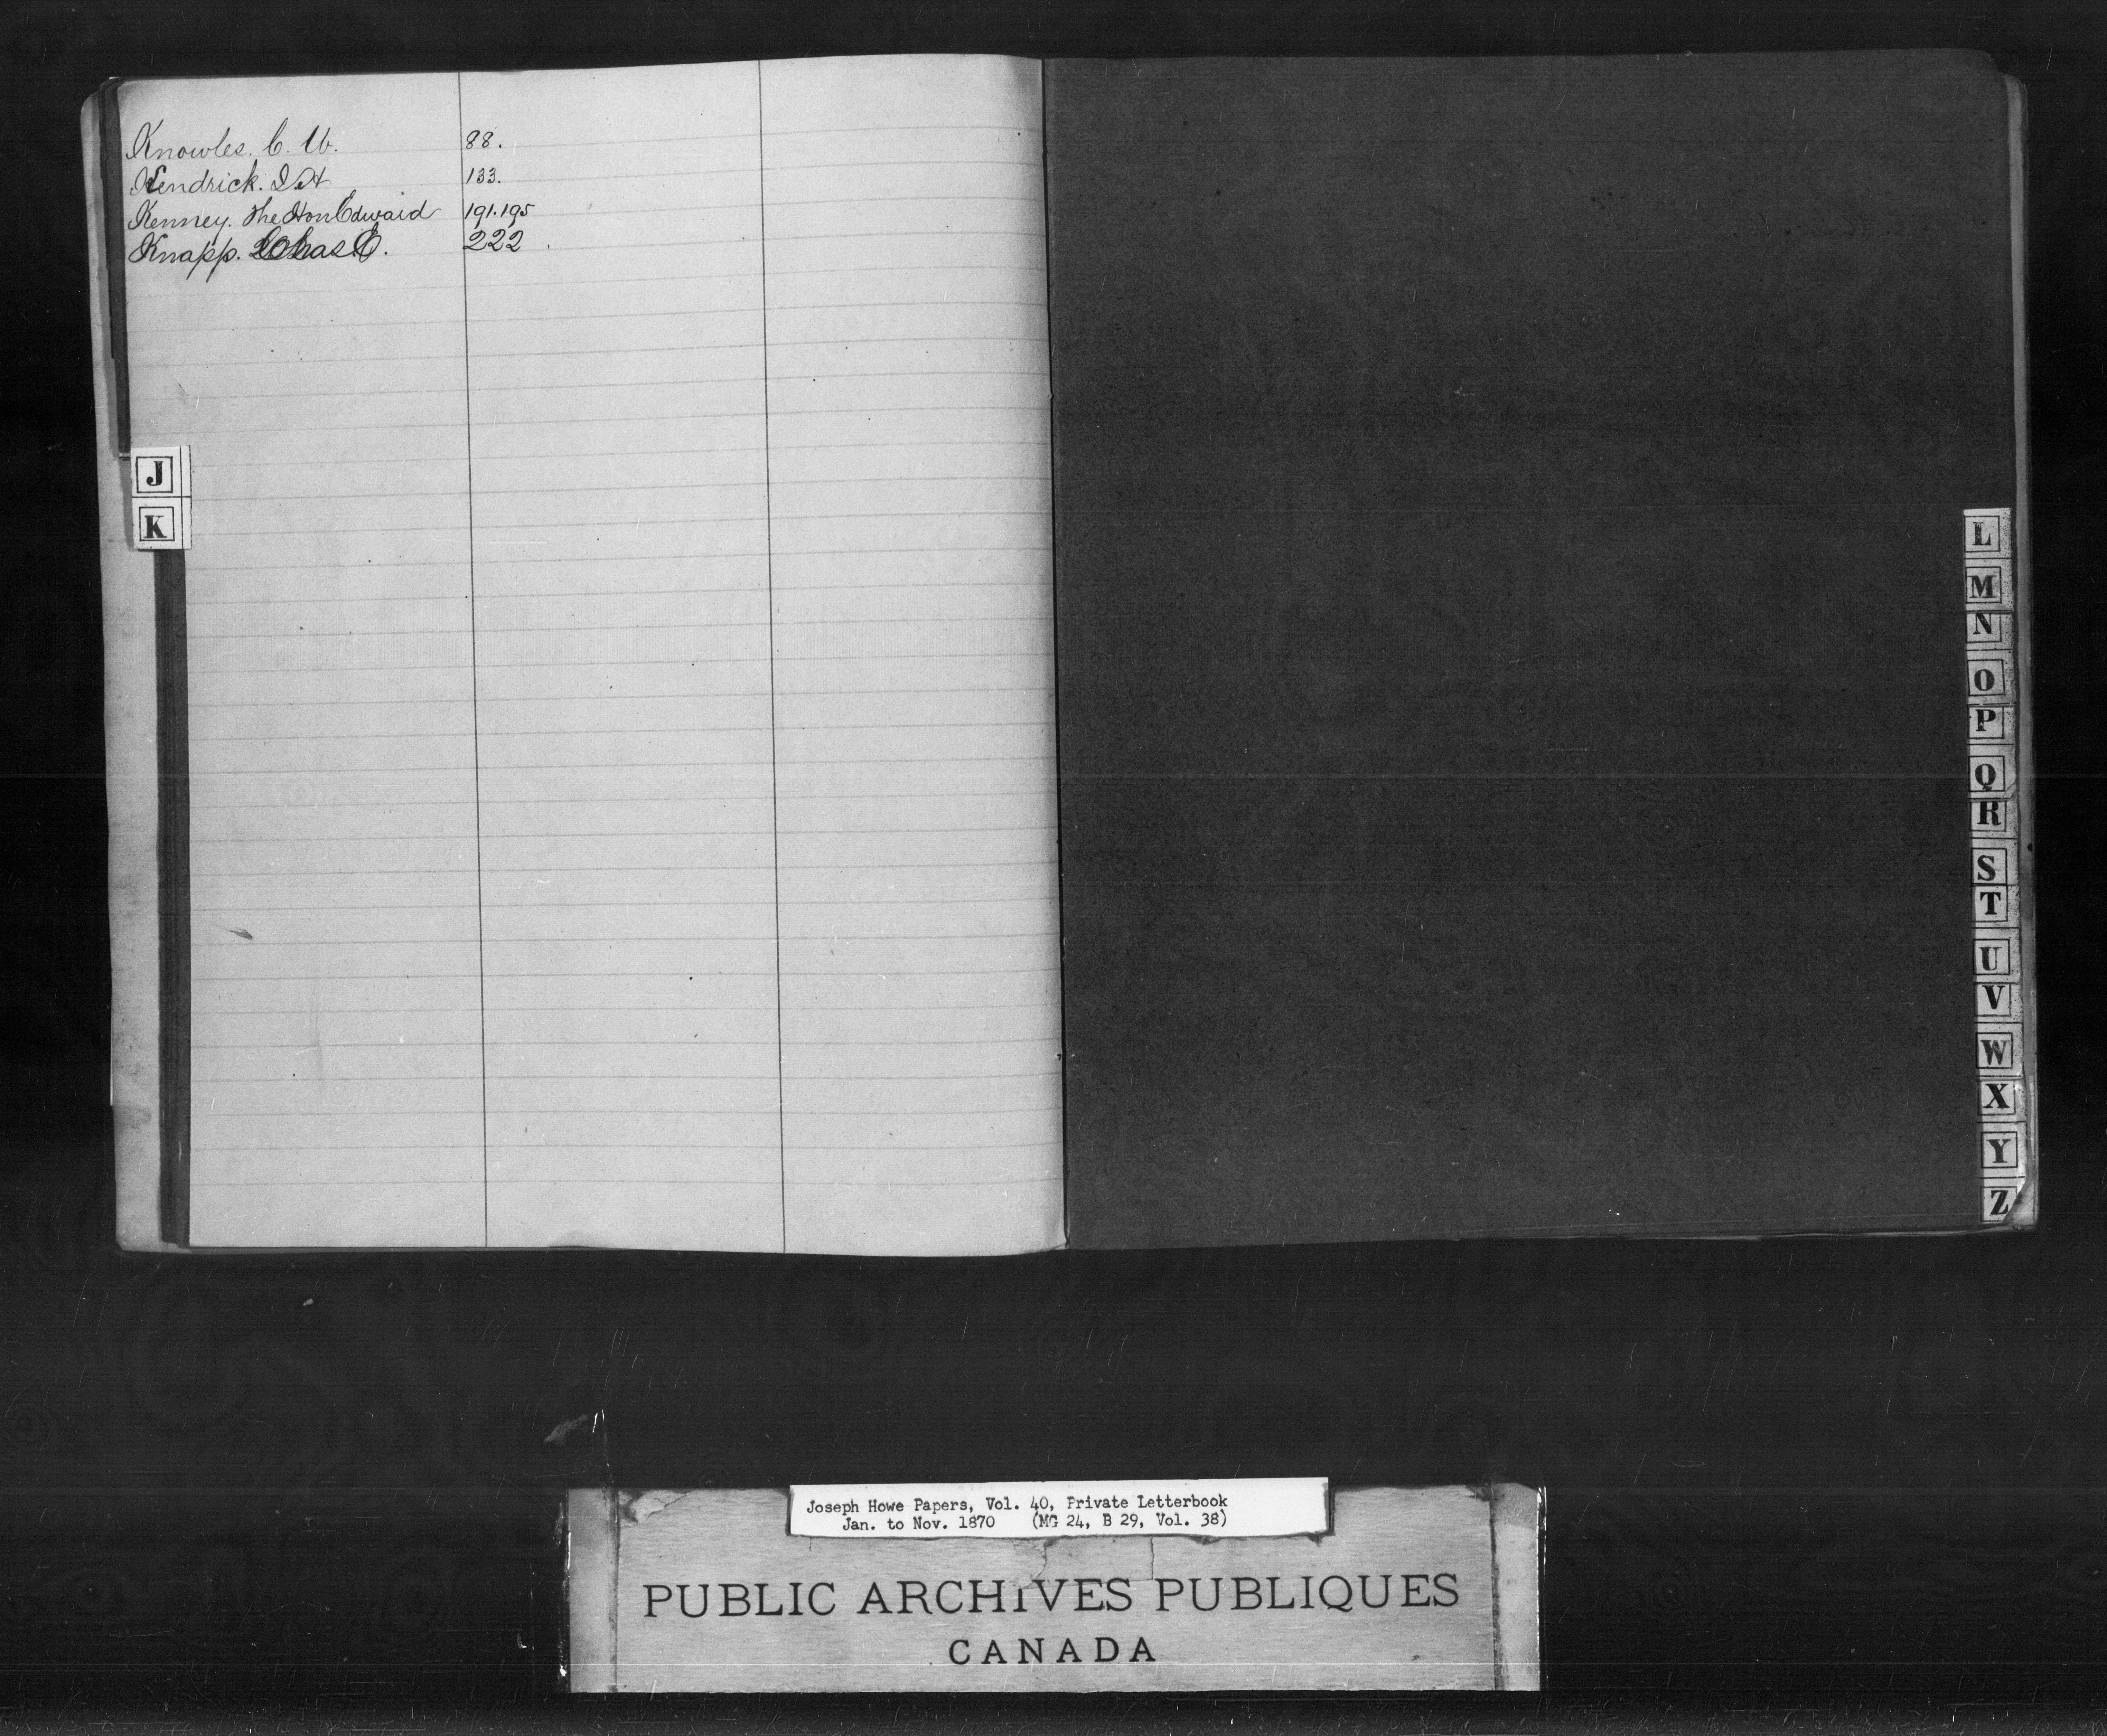 Knowles. C. W. 88.
Kendrick. I. H 133.
Kenney. The Hon Edward 191.195
Knapp. Chas E. 222.
J
K
L
M
N
O
P
Q
R
S
T
U
V
W
X
Y
Z
Joseph Howe Papers, Vol. 40, Private Letterbook
Jan. to Nov. 1870 (MG 24, B 29, Vol. 38)
PUBLIC ARCHIVES PUBLIQUES
CANADA